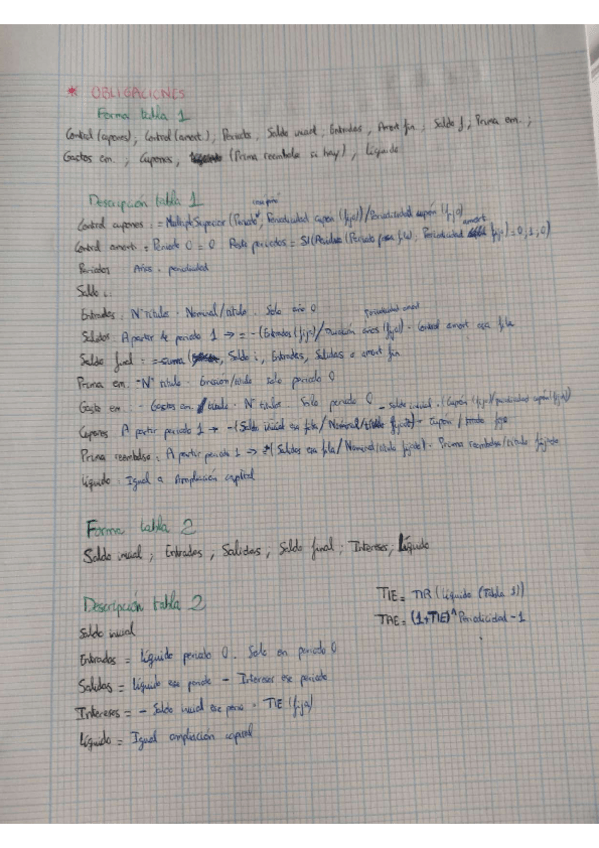 * OBLIGACIONES
Forma tabla 1
Control (cupones), Control (amort.), Periodos, Saldo inicial, Entradas, Amort fin., Saldo f, Prima em.,
Gastos em., Cupones, (Prima reembolso si hay), Líquido
Descripción tabla 1
Control cupones: = Multiplo.Superior (Periodo, Periodicidad cupon (fija)) / Periodicidad cupón (fija)
Control amort: Periodo 0 = 0 Resto periodos = SI (Residuo (Periodo fila), Periodicidad amort fija) = 0, 1, 0)
Periodos: Años · periodicidad
Saldo i:
Entradas: Nº Titulos · Nominal/titulo. Solo año 0
Salidas: A partir de periodo 1 → = -(Entradas (fija) / Duración años (fija)) · Control amort esa fila
periodicidad amort
Saldo final: = suma Saldo i, Entradas, Salidas o amort fin
Prima em. -Nº titulo · Emision/titulo solo periodo 0
Gasto em: - Gastos em. / titulo · Nº titulos. Sólo periodo 0
- Saldo inicial · (Cupón (fijo)/periodicidad cupón (fija))
Cupones: A partir periodo 1 → -(Saldo inicial en fila / Nominal/titulo fijado) · Cupón / titulo fijo
Prima reembolso: A partir periodo 1 → (Salidas en fila / Nominal/titulo fijado) · Prima reembolso/titulo fijada
Líquido: Igual a Ampliación capital
Forma tabla 2
Saldo inicial, Entradas, Salidas, Saldo final, Intereses, Líquido
Descripción tabla 2
Saldo inicial
Entradas = líquido periodo 0. Solo en periodo 0
Salidas = líquido ese periodo - Intereses ese periodo
Intereses = - Saldo inicial ese perio · TIE (fija)
Líquido = Igual ampliacion capital
TIE = TIR (líquido (Tabla 1))
TAE = (1+TIE)^Periodicidad - 1